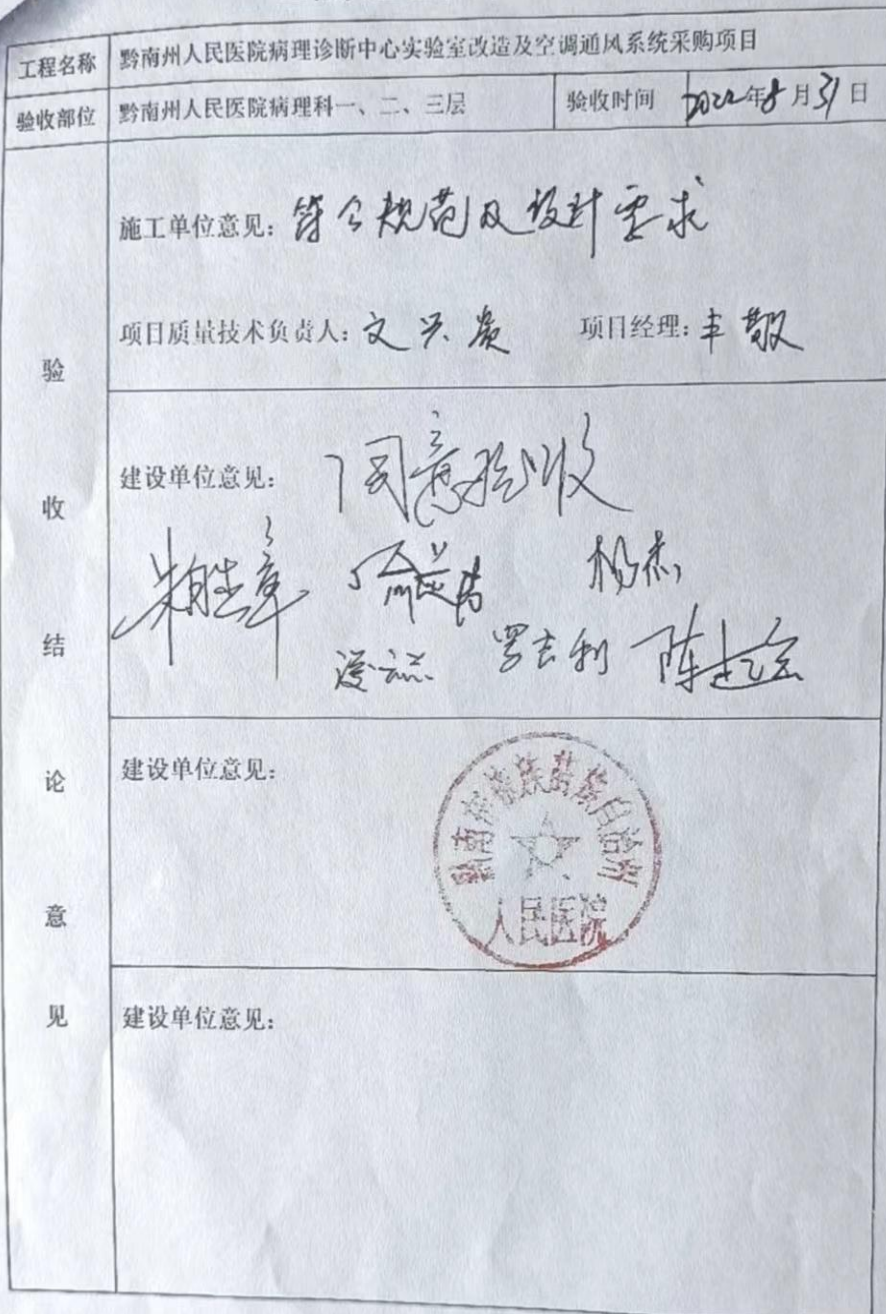 工程名称 黔南州人民医院病理诊断中心实验室改造及空调通风系统采购项目
验收部位 黔南州人民医院病理科一、二、三层 验收时间 2022年8月31日
验收结论意见
施工单位意见：符合规范及设计要求
项目质量技术负责人：文兴贵 项目经理：丰敬
建设单位意见：同意验收
杨杰
罗吉利
建设单位意见：
黔南布依族苗族自治州
人民医院
建设单位意见：